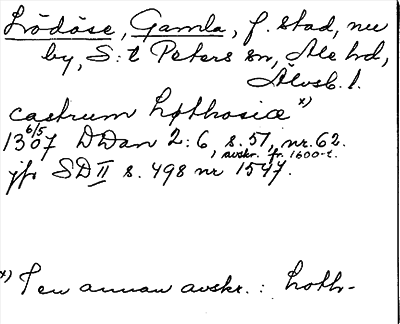 Lödöse, Gamla, f. stad, nu
by, S:t Peters sn, Ale hd,
Älvsb. l.
castrum Lothosiæ x)
6/5
1307 DDan 2:6, s. 51, nr. 62.
, avskr. fr. 1600-t.
jfr SD II s. 498 nr 1547.
x) I en annan avskr.: Loth-